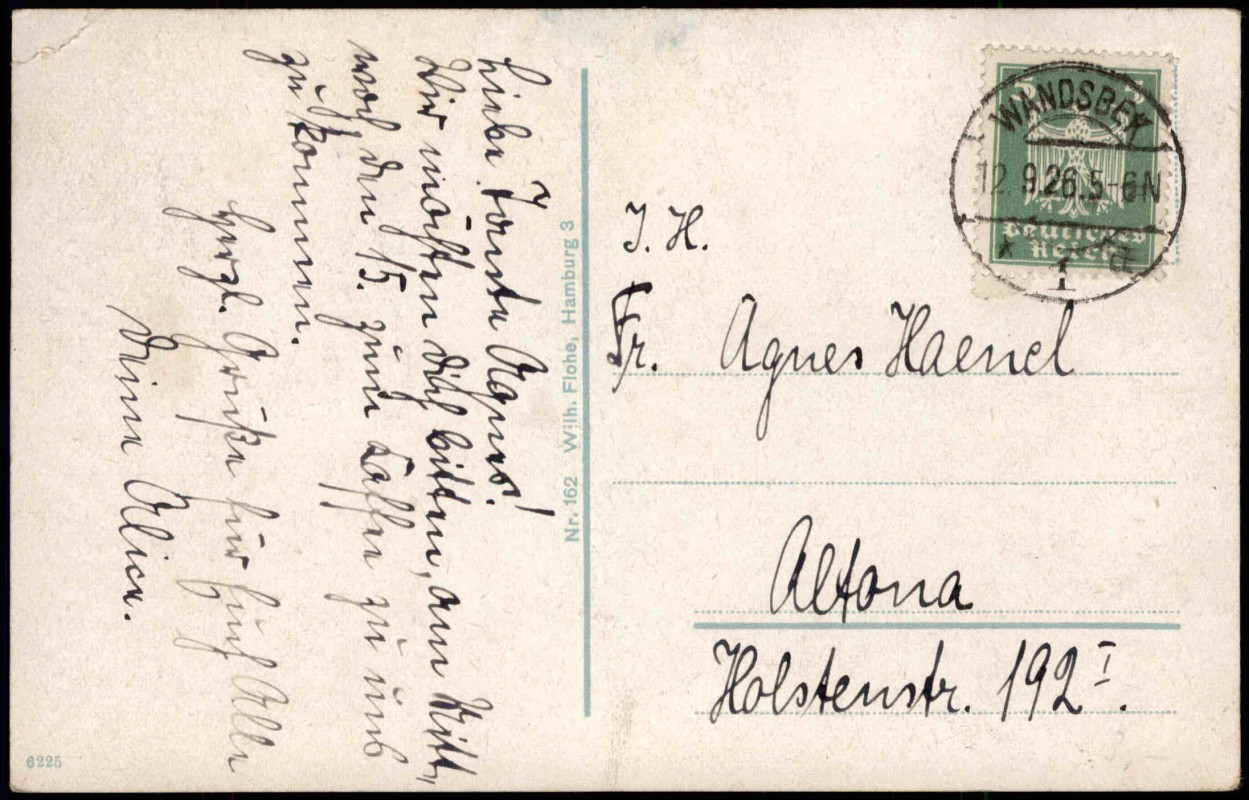 Liebe Tante Agnes!
Wir möchten dich bitten, am Mitt-
woch den 15. zum Kaffee zu uns
zu kommen.
Herzl. Grüße für Euch Alle
Deine Alice.
Nr. 162 Wilh. Flohe, Hamburg 3
WANDSBEK
12.9.26.5-6N
* 1 a
Deutsches
Reich
I. H.
Fr. Agnes Haenel
Altona
Holstenstr. 192 I.
6225